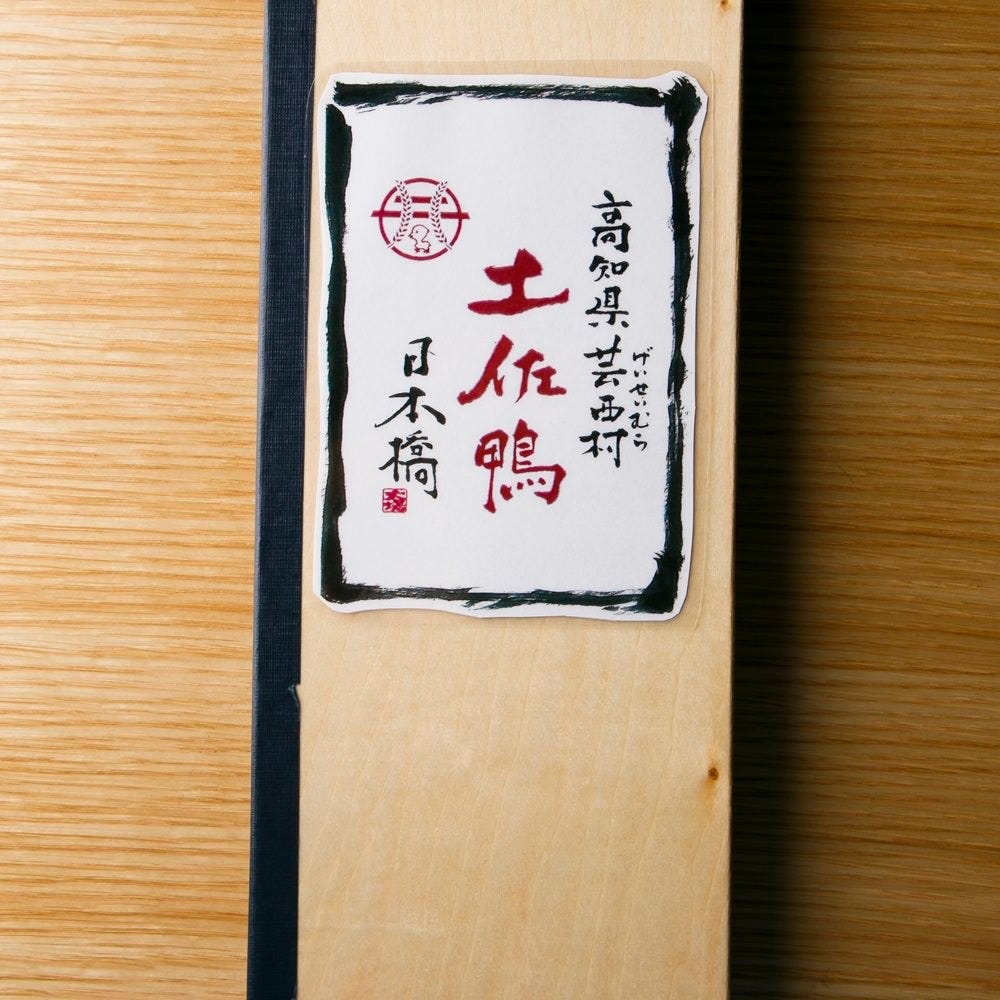 高知県芸西村
げいせいむら
土佐鴨
日本橋